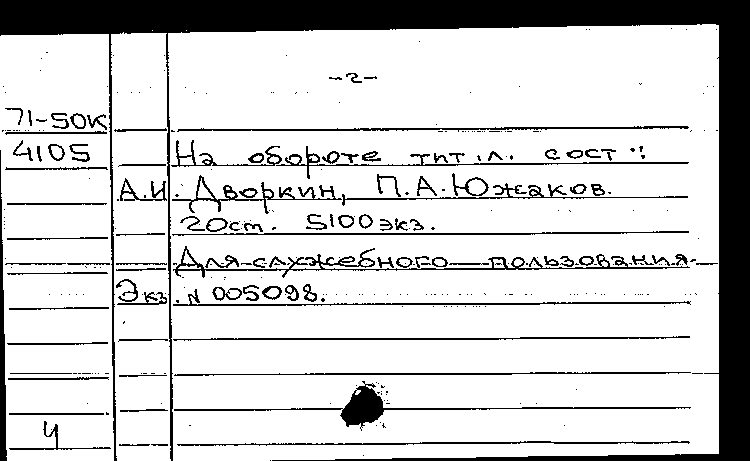 -2-
71-50К
4105 На обороте тит.л. сост.:
А.И. Дворкин, П.А.Южаков.
20см. 5100экз.
Для служебного пользования.
Экз. N 005098.
4